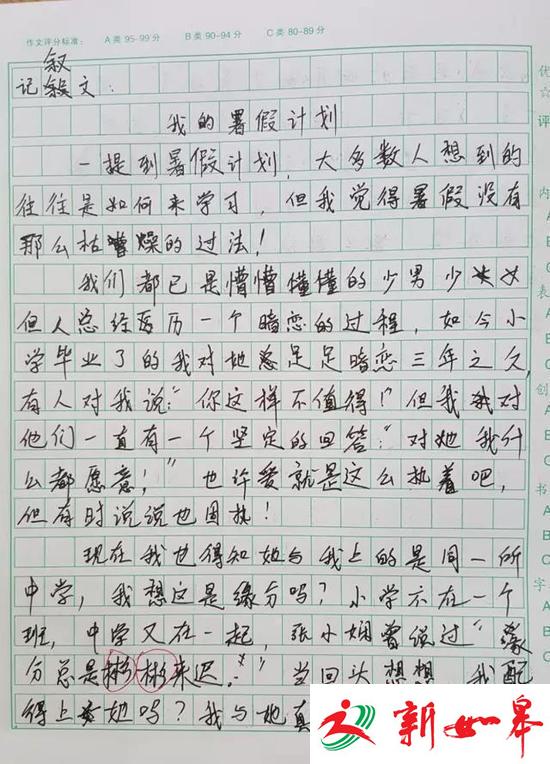 作文评分标准： A类 95-99分 B类 90-94分 C类 80-89分
优
☆
评
叙
记 文：
我的暑假计划
一提到暑假计划，大多数人想到的
往往是如何来学习，但我觉得暑假没有
那么枯燥的过法！
我们都已是懵懵懂懂的少男少女
但人总经历一个暗恋的过程，如今小
学毕业了的我对她总足足暗恋三年之久，
有人对我说：“你这样不值得！”但我对
他们一直有一个坚定的回答：“对她我什
么都愿意！”也许爱就是这么执着吧，
但有时说说也固执！
现在我也得知她与我上的是同一所
中学，我想这是缘分吗？小学不在一个
班，中学又在一起，张小娴曾说过“缘
分总是彬彬来迟。”当回头想想，我配
得上她吗？我与她真
内
A
B
C
表
A
B
C
创
A
B
C
书
A
B
C
字
A
B
C
新如皋